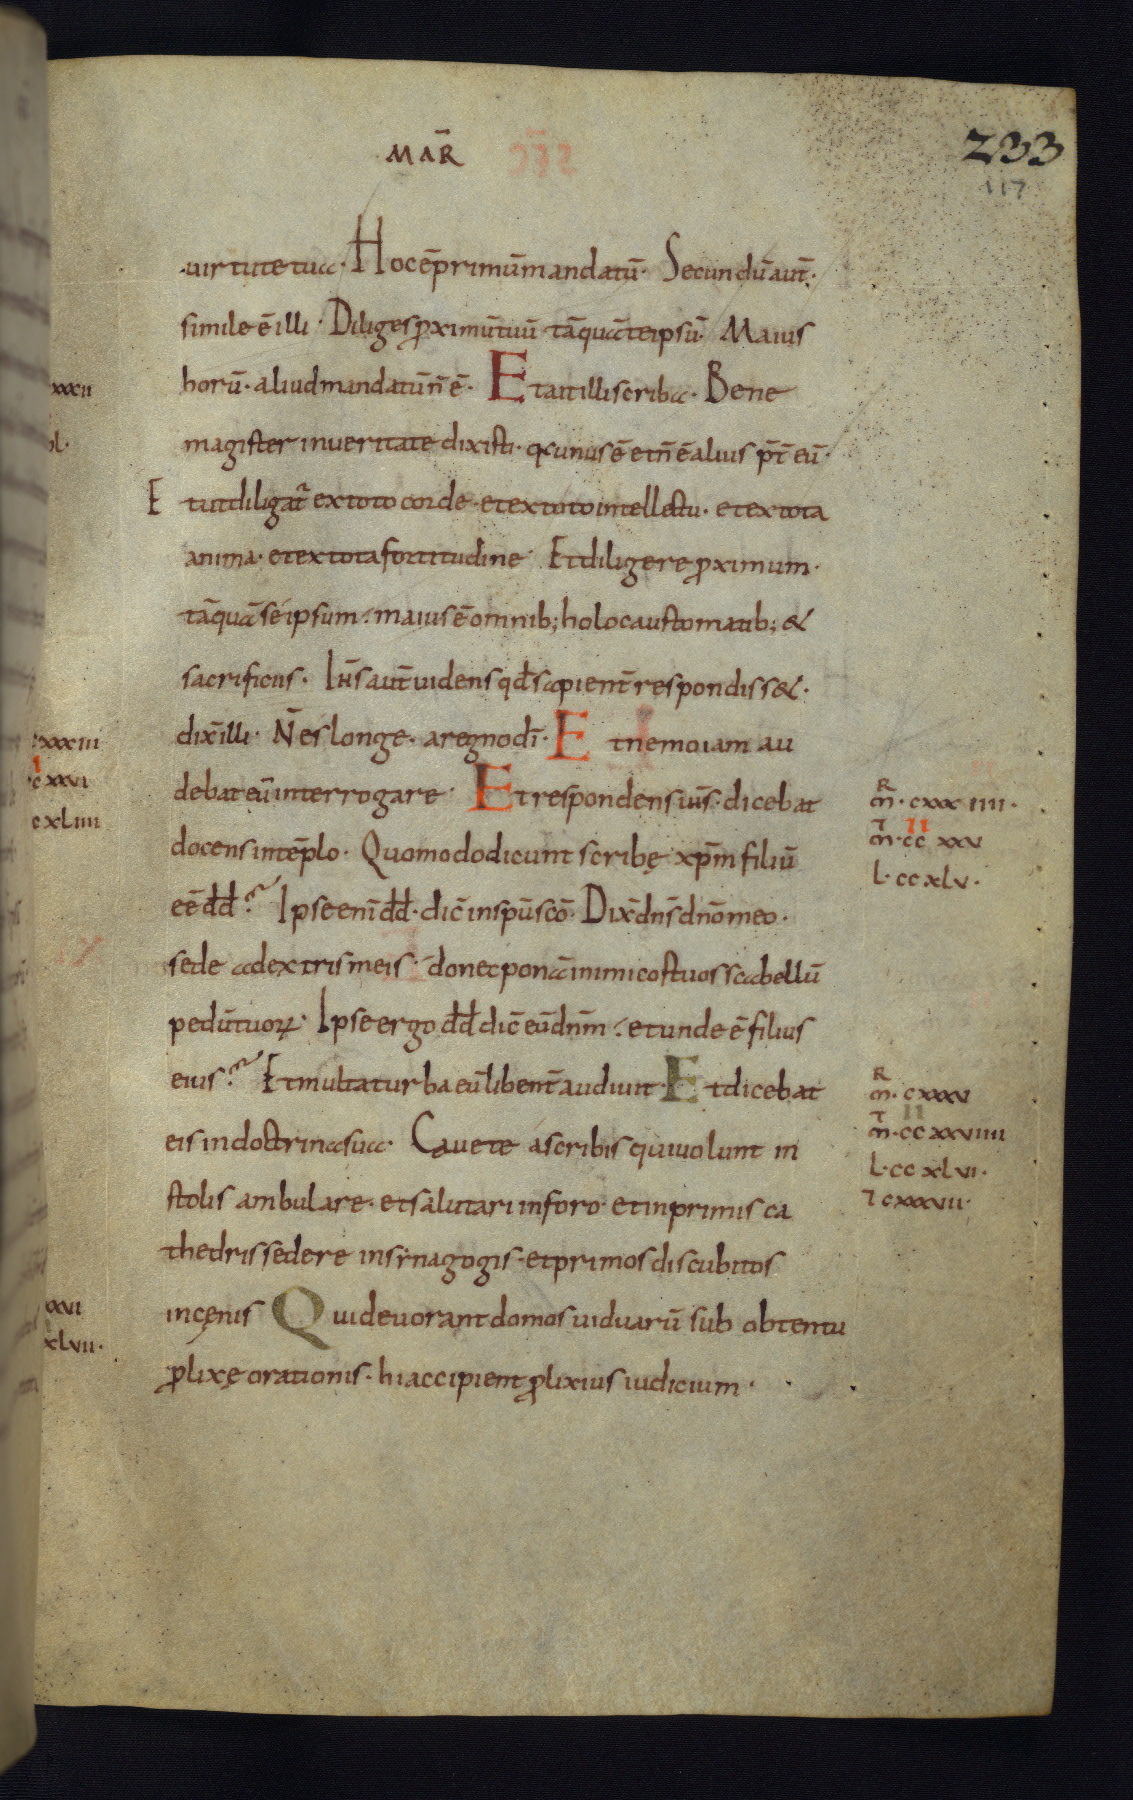 MAR̄
233
117
uirtute tua· Hoc ē primū mandatū· Secundū aut̄·
simile ē illi· Diliges proximū tuū tāquā te ipsū· Maius
horū· aliud mandatū n̄ ē· Et ait illi scriba· Bene
magister in ueritate dixisti· qa unus ē et n̄ ē alius p̄t̄ eū·
E tut diligat̄ ex toto corde· et ex toto intellectu· et ex tota
anima· et ex tota fortitudine· Et diligere proximum·
tāquā se ipsum· maius ē omnib; holocaustomatib; &
sacrificiis· Ih̄s aut̄ uidens qd̄ sapient̄ respondiss&·
dix̄ illi· N̄ es longe· a regno dī· Et nemo iam au
debat eū interrogare· Et respondens ih̄s· dicebat
docens in tēplo· Quomodo dicunt scribę xp̄m filiū
eē dd̄· Ipse enī dd̄· dic̄ in sp̄u scō· Dix̄ dn̄s dn̄o meo·
sede a dextris meis· donec ponā inimicos tuos scabellū
pedū tuoꝝ· Ipse ergo dd̄ dic̄ eū dn̄m· et unde ē filius
eius· Et multa turba eū libent̄ audiuit· Et dicebat
eis in doctrina sua· Cauete a scribis qui uolunt in
stolis ambulare· et salutari in foro· et in primis ca
thedris sedere in synagogis· et primos discubitos
in cęnis Qui deuorant domos uiduarū sub obtentu
prolixę orationis· hi accipient prolixius iudicium·
xxxii
xxxiii
cxxvi
cxliiii
xxvi
xlvii·
R
m̄· cxxxiiii·
⁊ ii
m̄· cc xxv
L· ccxlv·
R
m̄· cxxxv
⁊ ii
m̄· ccxxviiii
L· ccxlvi·
⁊ cxxxvii·